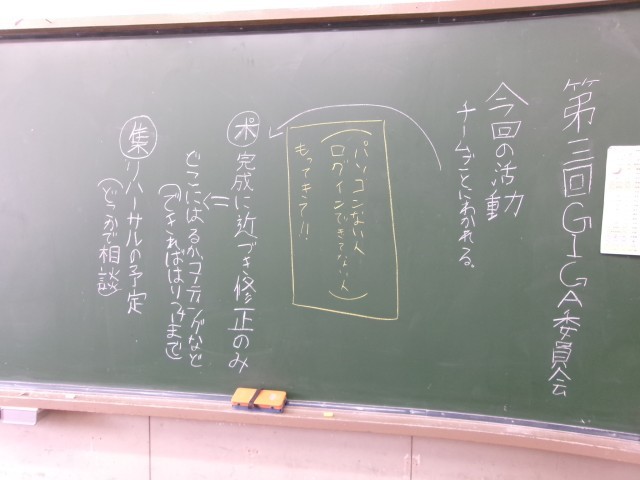 第三回GIGA委員会
今回の活動
チームごとにわかれる。
パソコンない人
ログインできてない人
もってきて!!
ポ 完成に近づき修正のみ
どこにはるか、コーティングなど
できればはりつけまで
集 リハーサルの予定
どっかで相談